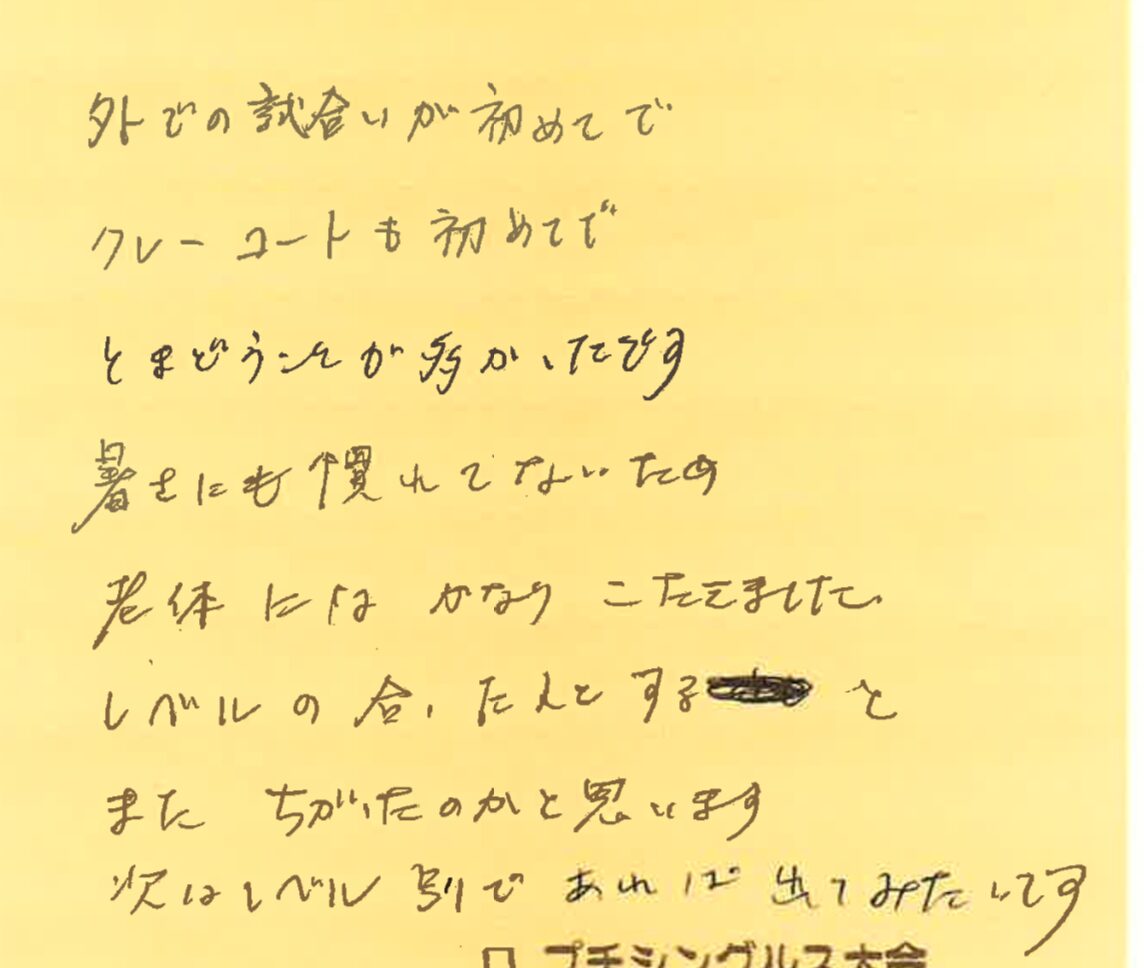 外での試合いが初めてで
クレーコートも初めてで
とまどうことが多かったです
暑さにも慣れてないため
老体にはかなりこたえました
レベルの合った人とすると
またちがったのかと思います
次はレベル別であれば出てみたいです
□ プチシングルス大会